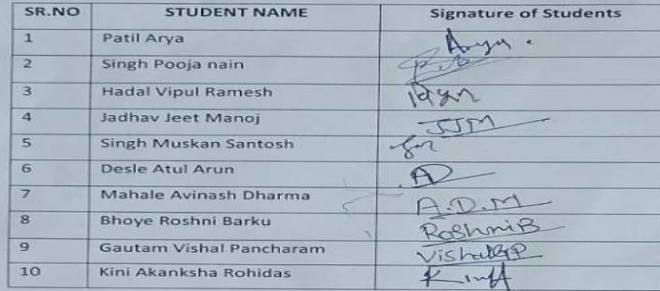 SR.NO STUDENT NAME Signature of Students
1 Patil Arya Arya.
2 Singh Pooja nain
3 Hadal Vipul Ramesh
4 Jadhav Jeet Manoj JJM
5 Singh Muskan Santosh
6 Desle Atul Arun AD
7 Mahale Avinash Dharma A.D.M
8 Bhoye Roshni Barku RoshniB
9 Gautam Vishal Pancharam VishalGP
10 Kini Akanksha Rohidas